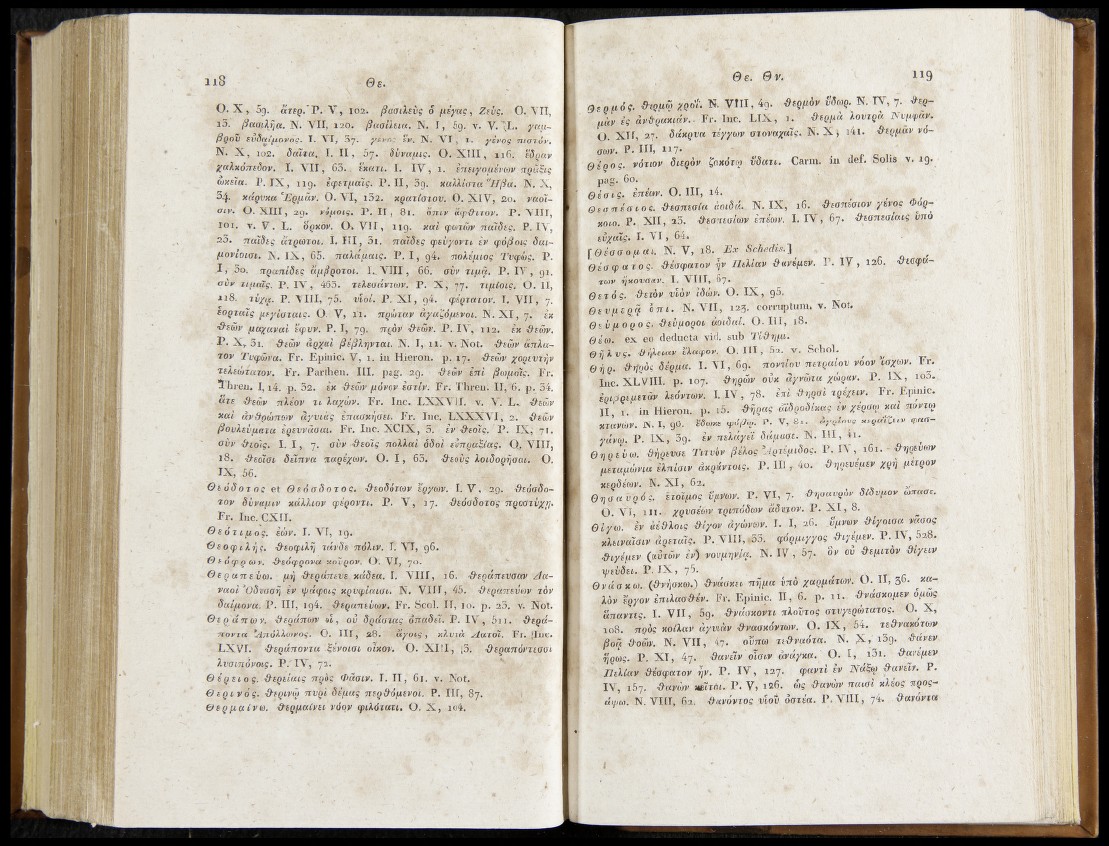 118 Θε.
O. X, 59. ἅτερ. P. V, 102. βασιλεὺς ὁ μέγας, Ζεύς. O. VII,
13. βασιλῆα. N. VII, 120. βασίλεια. N. I, 59. v. V. L. γαμ-
βροῦ εὐδαίμονος. I. VI, 37. γένος ἕν. N. VI, 1. γένος πιστόν.
N. X, 102. δαῖτα. I. II, 57. δύναμις. O. XIII, 116. ἕδραν
χαλκόπεδον. I. VII, 63. ἕκατι. I. IV, 1. ἐπειγομένων πρᾶξις
ὠκεῖα. P. IX, 119. ἐφετμαῖς. P. II, 39. καλλίστα Ἥβα. N. X,
34. κάρυκα Ἑρμᾶν. O. VI, 132. κρατίστου. O. XIV, 20. ναοῖ-
σιν. O. XIII, 29. νόμοις. P. II, 81. ὄπιν ἄφθιτον. P. VIII,
101. v. V. L. ὅρκον. O. VII, 119. καὶ φωτῶν παῖδες. P. IV,
23. παῖδες ἄτρωτοι. I. III, 31. παῖδες φεύγοντι ἐν φόβοις δαι-
μονίοισι. N. IX, 65. παλάμαις. P. I, 94. πολέμιος Τυφώς. P.
I, 30. πραπίδες ἄμβροτοι. I. VIII, 66. σὺν τιμᾷ. P. IV, 91.
σὺν τιμαῖς. P. IV, 463. τελεσάντων. P. X, 77. τιμίοις. O. II,
118. τύχᾳ. P. VIII, 75. υἱοί. P. XI, 94. φέρτατον. I. VII, 7.
ἑορταῖς μεγίσταις. O. V, 11. πρῶταν ἀγαζόμενοι. N. XI, 7. ἐκ
θεῶν μαχαναὶ ἔφυν. P. I, 79. πρὸν θεῶν. P. IV, 112. ἐκ θεῶν.
P. X, 31. θεῶν ἀρχαὶ βέβληνται. N. I, 11. v. Not. θεῶν ἄπλα-
τον Τυφῶνα. Fr. Epinic. V, 1. in Hieron. p. 17. θεῶν χορευτὴν
τελεώτατον. Fr. Parthen. III. pag. 29. θεῶν ἐπὶ βωμοῖς. Fr.
Thren. I, 14. p. 32. ἐκ θεῶν μόνον ἐστίν. Fr. Thren. II, 6. p. 34.
ἅτε θεῶν πλέον τι λαχών. Fr. Inc. LXXVII. v. V. L. θεῶν
καὶ ἀνθρώπων ἀγυιὰς ἐπασκήσει. Fr. Inc. LXXXVI, 2. θεῶν
βουλεύματα ἐρευνᾶσαι. Fr. Inc. XCIX, 3. ἐν θεοῖς. P. IX, 71.
σὺν θεοῖς. I. I, 7. σὺν θεοῖς πολλαὶ ὁδοὶ εὐπραξίας. O. VIII,
18. θεοῖσι δεῖπνα παρέχων. O. I, 63. θεοὺς λοιδορῆσαι. O.
IX, 56.
Θεόδοτος et Θεόσδοτος. θεοδότων ἔργων. I. V, 29. θεόσδο-
τον δύναμιν κάλλιον φέροντι. P. V, 17. θεόσδοτος πρεστύχῃ.
Fr. Inc. CXII.
Θεότιμος. ἐών. I. VI, 19.
Θεοφιλής. θεοφιλῆ τάνδε πόλιν. I. VI, 96.
Θεόφρων. θεόφρονα κοῦρον. O. VI, 70.
Θεραπεύω. μὴ θεράπευε κάδεα. I. VIII, 16. θεράπευσαν Δα-
ναοὶ Ὀδυσσῆ ἐν ψάφοις κρυφίαισι. N. VIII, 45. θεραπεύων τὸν
δαίμονα. P. III, 194. θεραπεύων. Fr. Scol. II, 10. p. 23. v. Not.
Θεράπων. θεράπων οἱ, οὐ δράστας ὀπαδεῖ. P. IV, 511. θερά-
ποντα Ἀπόλλωνος. O. III, 28. ἅγοις, κλυτὰ Λατοῖ. Fr. Inc.
LXVI. θεράποντα ξένοισι οἶκον. O. XIII, 3. θεραπόντεσσι
λυσιπόνοις. P. IV, 72.
Θέρειος. θερείαις πρὸς Φᾶσιν. I. II, 61. v. Not.
Θερινός. θερινῷ πυρὶ δέμας περθόμενοι. P. III, 87.
Θερμαίνω. θερμαίνει νόον φιλότατι. O. X, 104.
Θε. Θν. 119
Θερμός. θερμῷ χροΐ. N. VIII, 49. θερμὸν ὕδωρ. N. IV, 7. θερ-
μὰν ἐς ἀνθρακιάν. Fr. Inc. LIX, 1. θερμὰ λουτρὰ Νυμφᾶν.
O. XII, 27. δάκρυα τέγγων στοναχαῖς. N. X, 141. θερμᾶν νό-
σων. P. III, 117.
Θέρος. νότιον διερὸν ζακότῳ ὕδατι. Carm. in def. Solis v. 19.
pag. 60.
Θέσις. ἐπέων. O. III, 14.
Θεσπέσιος. θεσπεσία ἀοιδά. N. IX, 16. θεσπέσιον γένος Φόρ-
κοιο. P. XII, 23. θεσπεσίων ἐπέων. I. IV, 67. θεσπεσίαις ὑπὸ
εὐχαῖς. I. VI, 64.
[Θέσσομαι. N. V, 18. Ex Schedis.]
Θέσφατος. θέσφατον ἦν Πελίαν θανέμεν. P. IV, 126. θεσφά-
των ἤκουσαν. I. VIII, 67.
Θετός. θετὸν υἱὸν ἰδών. O. IX, 95.
Θευμερᾷ ἔπι. N. VII, 123. corruptum. v. Not.
Θεύμορος. θεύμοροι ἀοιδαί. O. III, 18.
Θέω. ex eo deducta vid. sub Τίθημι.
Θῆλυς. θήλειαν ἔλαφον. O. III, 52. v. Schol.
Θήρ. θηρὸς δέρμα. I. VI, 69. ποντίου πετραίου νόον ἴσχων. Fr.
Inc. XLVIII. p. 107. θηρῶν οὐκ ἀγνῶτα χώραν. P. IX, 103.
ἐριβρεμετᾶν λεόντων. I. IV, 78. ἐπὶ θηρσὶ τρέχειν. Fr. Epinic.
II, 1. in Hieron. p. 15. θῆρας ἀϊδροδίκας ἐν χέρσῳ καὶ πόντῳ
κτανών. N. I, 96. ἔδωκε φόβῳ. P. V, 81. ἀγρίους κεραΐζειν φασ-
γάνῳ. P. IX, 39. ἐν πελάγεϊ δάμασε. N. III, 41.
Θηρεύω. θήρευσε Τιτυὸν βέλος Ἀρτέμιδος. P. IV, 161. θηρεύων
μεταμώνια ἐλπίσιν ἀκράντοις. P. III, 40. θηρευέμεν χρὴ μέτρον
κερδέων. N. XI, 62.
Θησαυρός. ἑτοῖμος ὕμνων. P. VI, 7. θησαυρὸν δίδυμον ὤπασε.
O. VI, 111. χρυσέων τριπόδων ἄδυτον. P. XI, 8.
Θίγω. ἐν ἀέθλοις θίγον ἀγώνων. I. I, 26. ὕμνων θίγοισα νᾶσος
κλειναῖσιν ἀρεταῖς. P. VIII, 33. φόρμιγγος θιγέμεν. P. IV, 528.
θιγέμεν (αὐτῶν ἐν) νουμηνίᾳ. N. IV, 57. ὃν οὐ θεμιτὸν θίγειν
ψεύδει. P. IX, 75.
Θνάσκω. (θνήσκω.) θνάσκει πῆμα ὑπὸ χαρμάτων. O. II, 36. κα-
λὸν ἔργον ἐπιλασθέν. Fr. Epinic. II, 6. p. 11. θνάσκομεν ὁμῶς
ἅπαντες. I. VII, 59. θνάσκοντι πλοῦτος στυγερώτατος. O. X,
108. πρὸς κοίλαν ἀγυιὰν θνασκόντων. O. IX, 54. τεθνακότων
βοᾷ θοῶν. N. VII, 47. οὔπω τεθναότα. N. X, 139. θάνεν
ἥρως. P. XI, 47. θανεῖν οἷσιν ἀνάγκα. O. I, 131. θανέμεν
Πελίαν θέσφατον ἦν. P. IV, 127. φαντὶ ἐν Νάξῳ θανεῖν. P.
IV, 157. θανὼν κεῖται. P. V, 126. ὡς θανὼν παισὶ κλέος προς-
άψω. N. VIII, 62. θανόντος υἱοῦ ὀστέα. P. VIII, 74. θανόντα